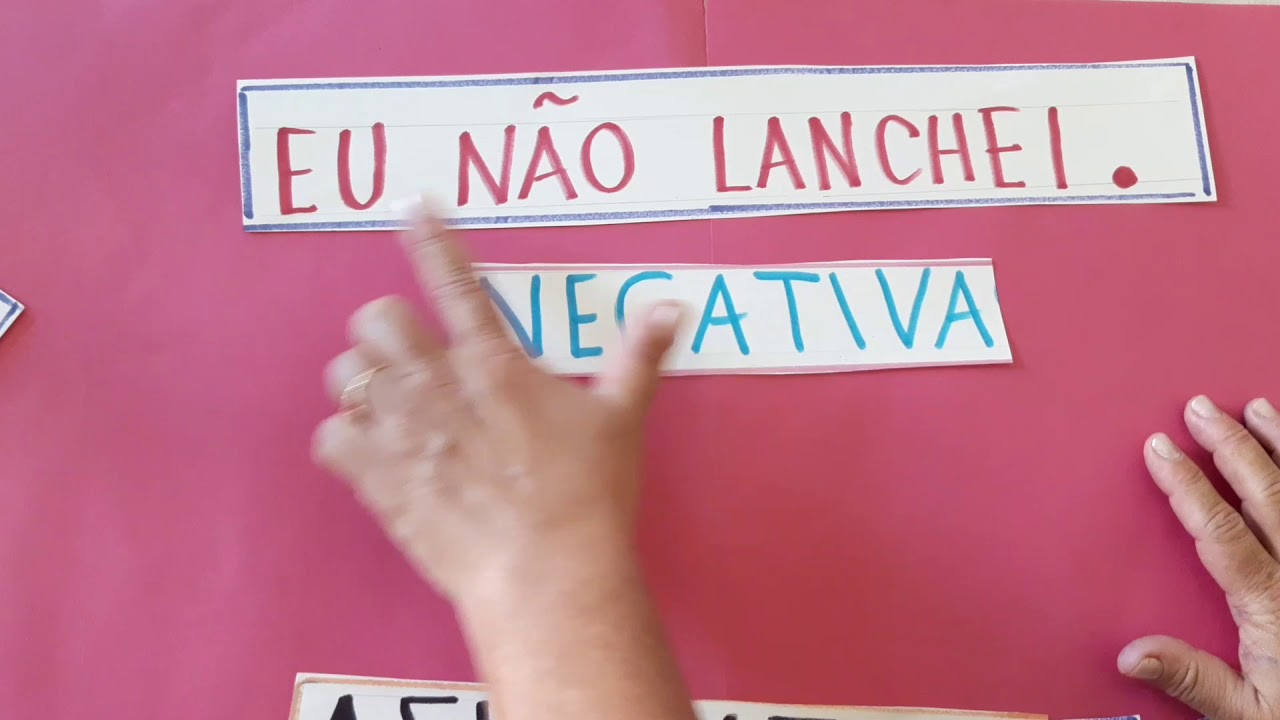 EU NÃO LANCHEI.
NEGATIVA